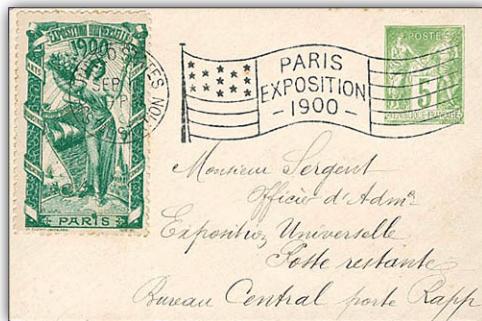 EXPOSITION UNIVERSELLE
1900
SEP
PARIS
PARIS
EXPOSITION
- 1900 -
POSTES
5
REPUBLIQUE FRANÇAISE
Monsieur Sergent
Officier d'Admon
Exposition Universelle
Poste restante
Bureau Central porte Rapp